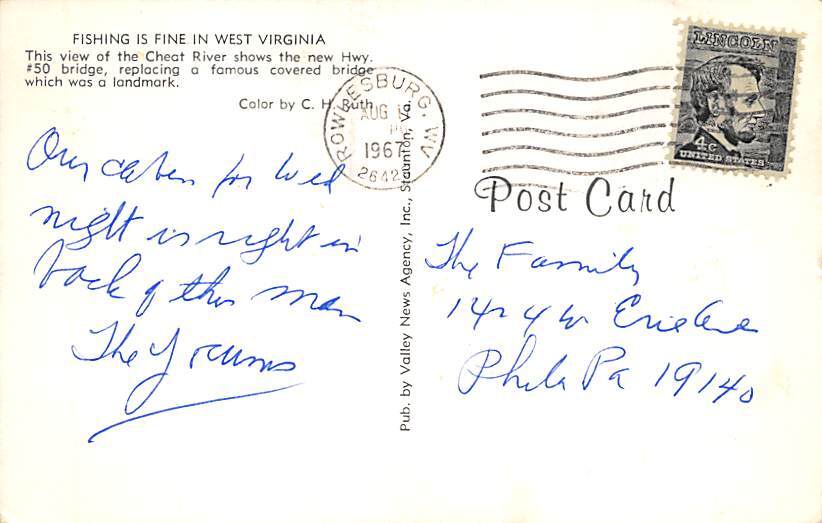 FISHING IS FINE IN WEST VIRGINIA
This view of the Cheat River shows the new Hwy.
#50 bridge, replacing a famous covered bridge
which was a landmark.
Color by C. H. Ruth
Our cabin for Wed
night is right in
back of this man
The Yocums
Pub. by Valley News Agency, Inc., Staunton, Va.
ROWLESBURG, WV
AUG
1967
2642
LINCOLN
4c
UNITED STATES
Post Card
The Family
1424 W Erie Ave
Phila Pa 19140